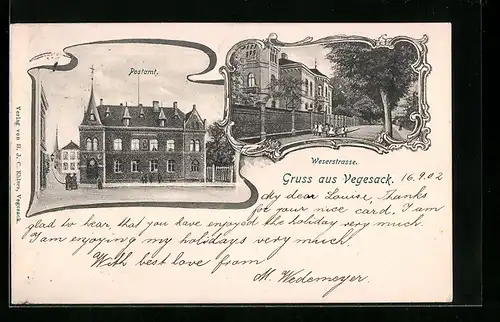 Postamt.
Weserstrasse.
Gruss aus Vegesack.
16.9.02
My dear Louise, Thanks
for your nice card. I am
glad to hear, that you have enjoyed the holiday very much.
I am enjoying my holidays very much.
With best love from
M. Wedemeyer.
Verlag von H. J. C. Ehlers, Vegesack.